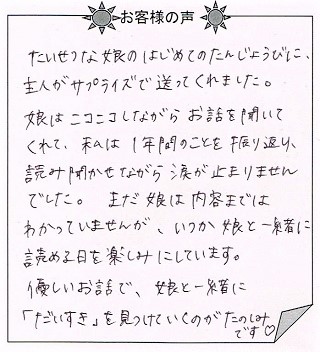 お客様の声
たいせつな娘のはじめてのたんじょうびに、
主人がサプライズで送ってくれました。
娘はニコニコしながらお話を聞いて
くれて、私は1年間のことを振り返り、
読み聞かせながら涙が止まりません
でした。まだ娘は内容までは
わかっていませんが、いつか娘と一緒に
読める日を楽しみにしています。
優しいお話で、娘と一緒に
「だいすき」を見つけていくのがたのしみ
です♡